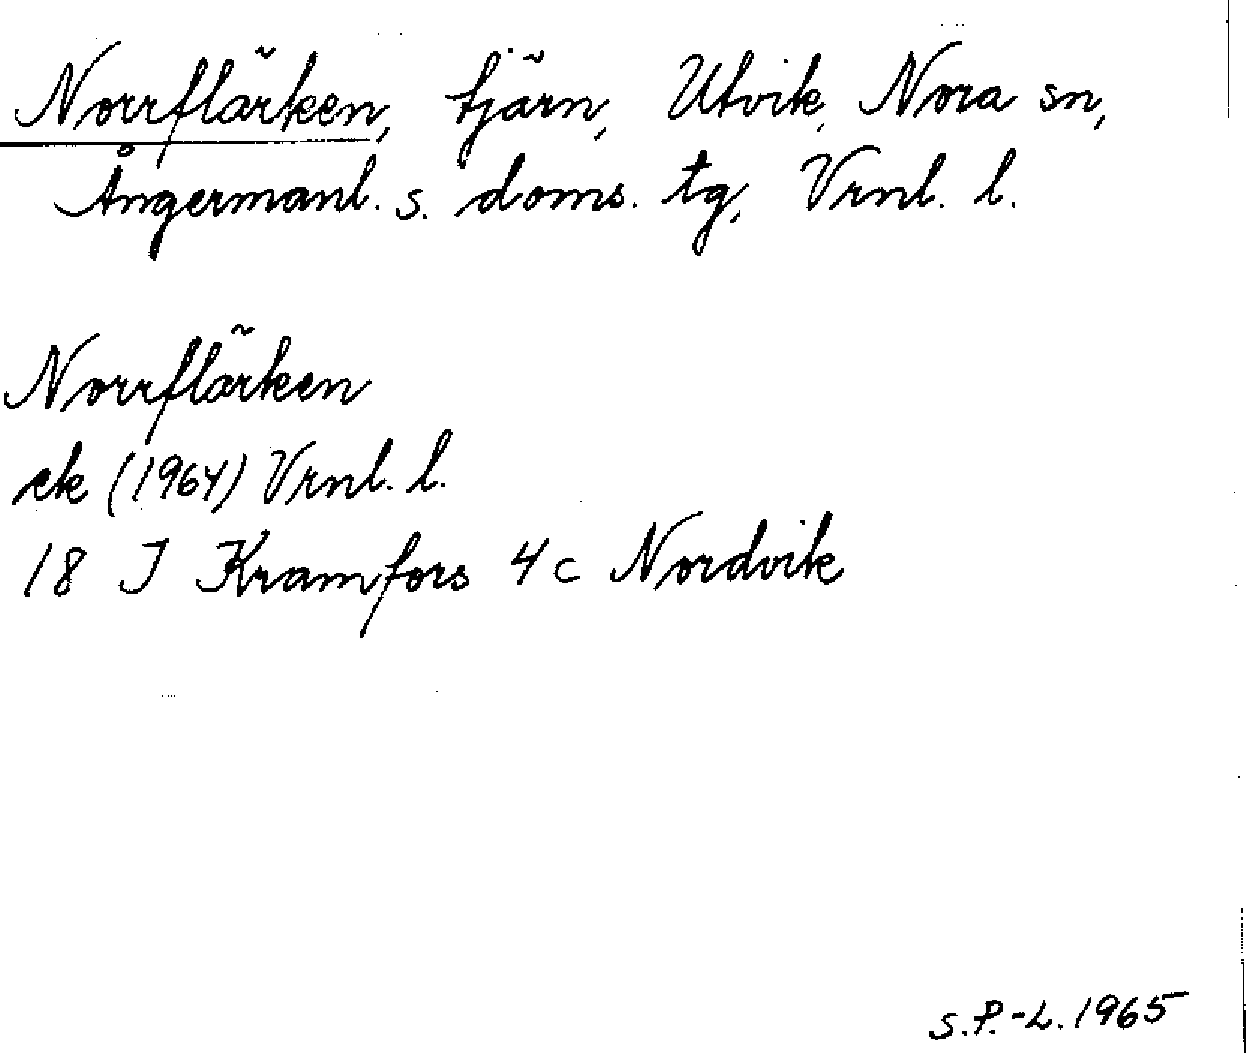 Norrflärken, tjärn, Utvik, Nora sn,
Ångermanl. s. doms. tg, Vrnl. l.
Norrflärken
ek (1964) Vrnl. l.
18 J Kramfors 4c Nordvik
S.P.-L. 1965